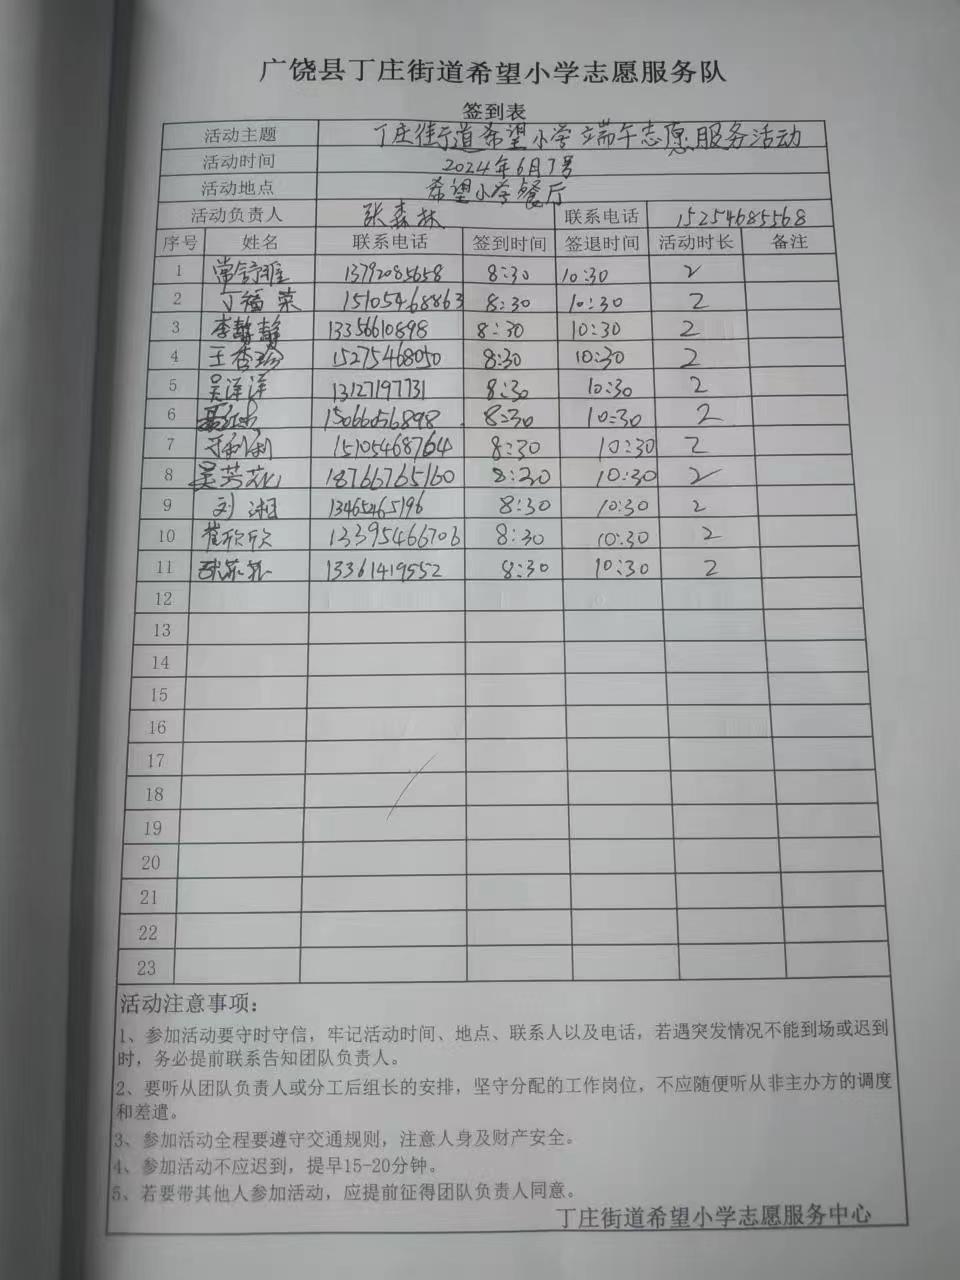 广饶县丁庄街道希望小学志愿服务队
签到表
活动主题 丁庄街道希望小学端午志愿服务活动
活动时间 2024年6月7号
活动地点 希望小学餐厅
活动负责人 张森林 联系电话 15254685568
序号 姓名 联系电话 签到时间 签退时间 活动时长 备注
1 常舒雅 13792085658 8:30 10:30 2
2 丁福荣 15105468863 8:30 10:30 2
3 李静静 13356610898 8:30 10:30 2
4 王杏珍 15275468050 8:30 10:30 2
5 吴洋洋 13127197731 8:30 10:30 2
6 15066056898 8:30 10:30 2
7 15105468764 8:30 10:30 2
8 吴芳花 18766765160 8:30 10:30 2
9 刘湘 13465465196 8:30 10:30 2
10 崔欣欣 13395466703 8:30 10:30 2
11 13361419552 8:30 10:30 2
12
13
14
15
16
17
18
19
20
21
22
23
活动注意事项：
1、参加活动要守时守信，牢记活动时间、地点、联系人以及电话，若遇突发情况不能到场或迟到
时，务必提前联系告知团队负责人。
2、要听从团队负责人或分工后组长的安排，坚守分配的工作岗位，不应随便听从非主办方的调度
和差遣。
3、参加活动全程要遵守交通规则，注意人身及财产安全。
4、参加活动不应迟到，提早15-20分钟。
5、若要带其他人参加活动，应提前征得团队负责人同意。
丁庄街道希望小学志愿服务中心